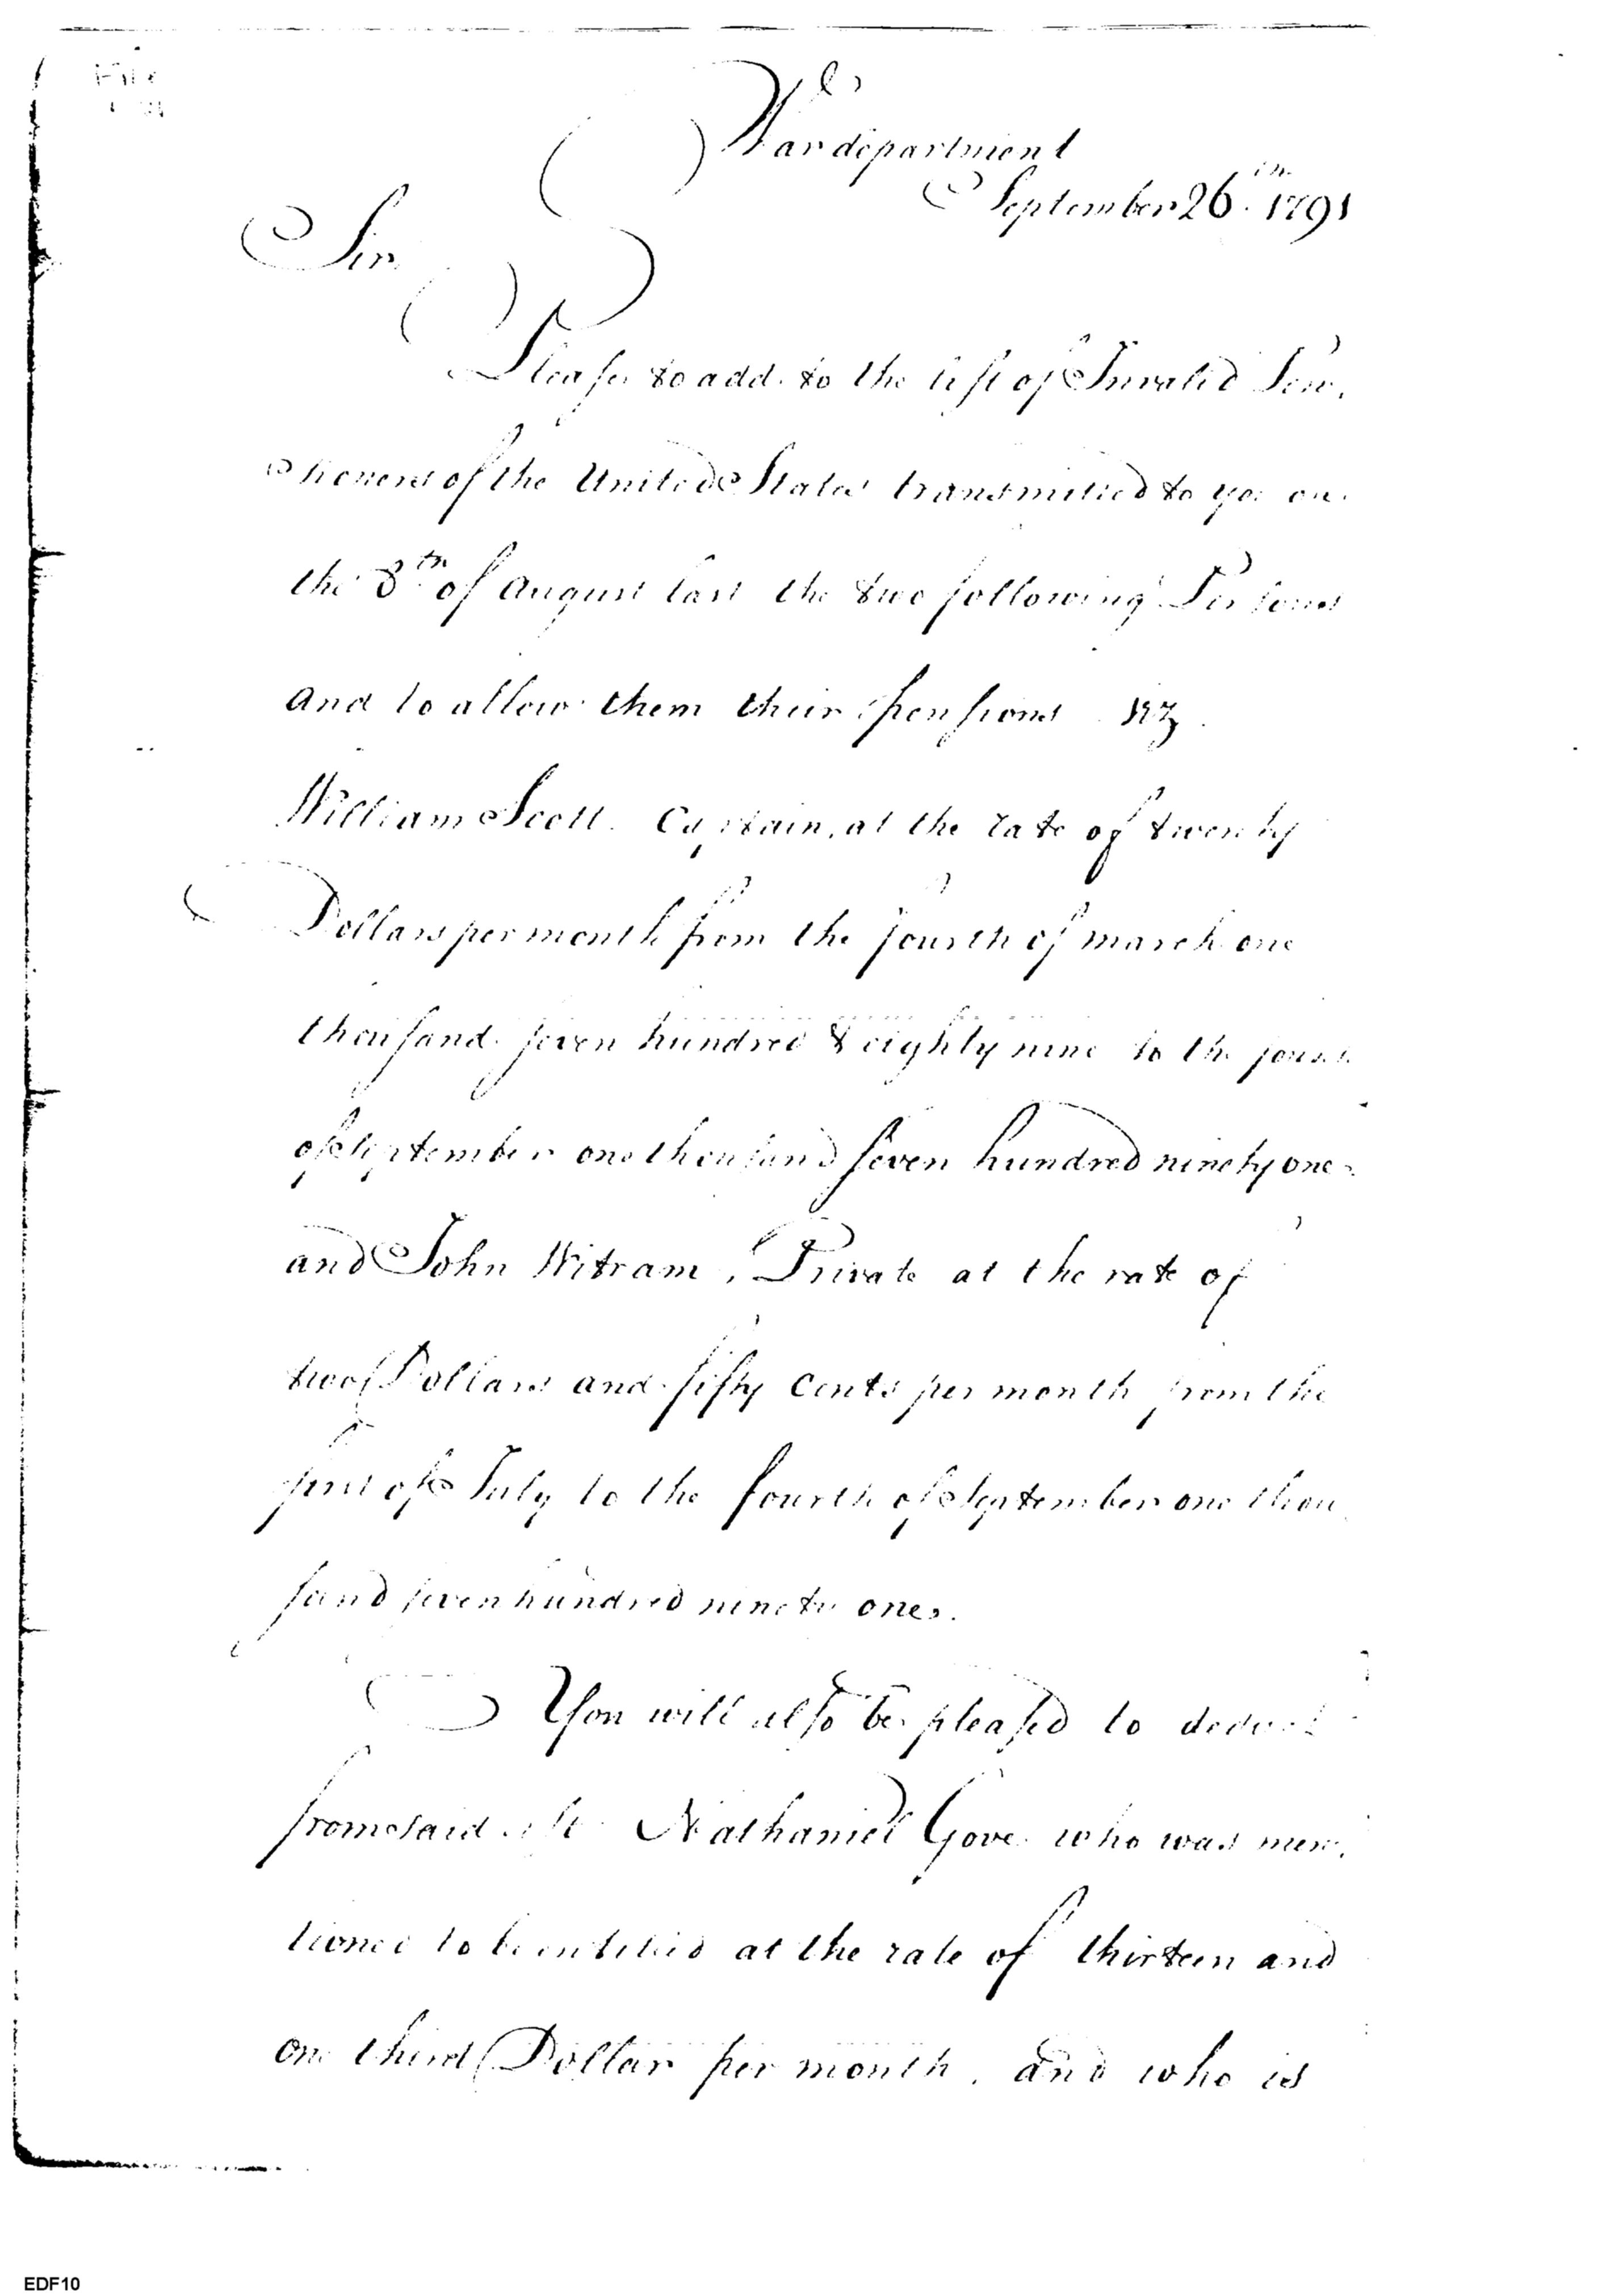 War department
September 26th. 1791
Sir
Please to add to the list of Invalid Pen,
sioners of the United States transmitted to you on
the 8th of August last the two following Persons
and to allow them their pensions Viz
William Scott. Captain, at the rate of twenty
Dollars per month from the fourth of march one
thousand seven hundred & eighty nine to the fourth
of September one thousand seven hundred ninety one
and John Witram, Private at the rate of
two Dollars and fifty Cents per month from the
first of July to the fourth of September one thou
sand seven hundred ninety one.
You will also be pleased to deduct
from said list Nathaniel Gove who was men,
tioned to be entitled at the rate of thirteen and
one third Dollar per month. and who is
EDF10